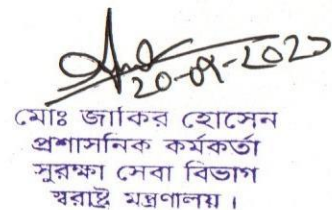 20-09-2023
মোঃ জাকির হোসেন
প্রশাসনিক কর্মকর্তা
সুরক্ষা সেবা বিভাগ
স্বরাষ্ট্র মন্ত্রণালয়।